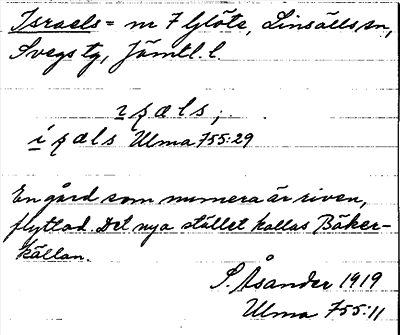 Israels = nr 7 Glöte, Linsälls sn,
Svegs tg, Jämtl. l.
ɪ ʂ æ l s ;
í ʂ æ l s Ulma 755:29
En gård som numera är riven,
flyttad. Det nya stället kallas Bäker-
källan.
S. Åsander 1919
Ulma 755:11